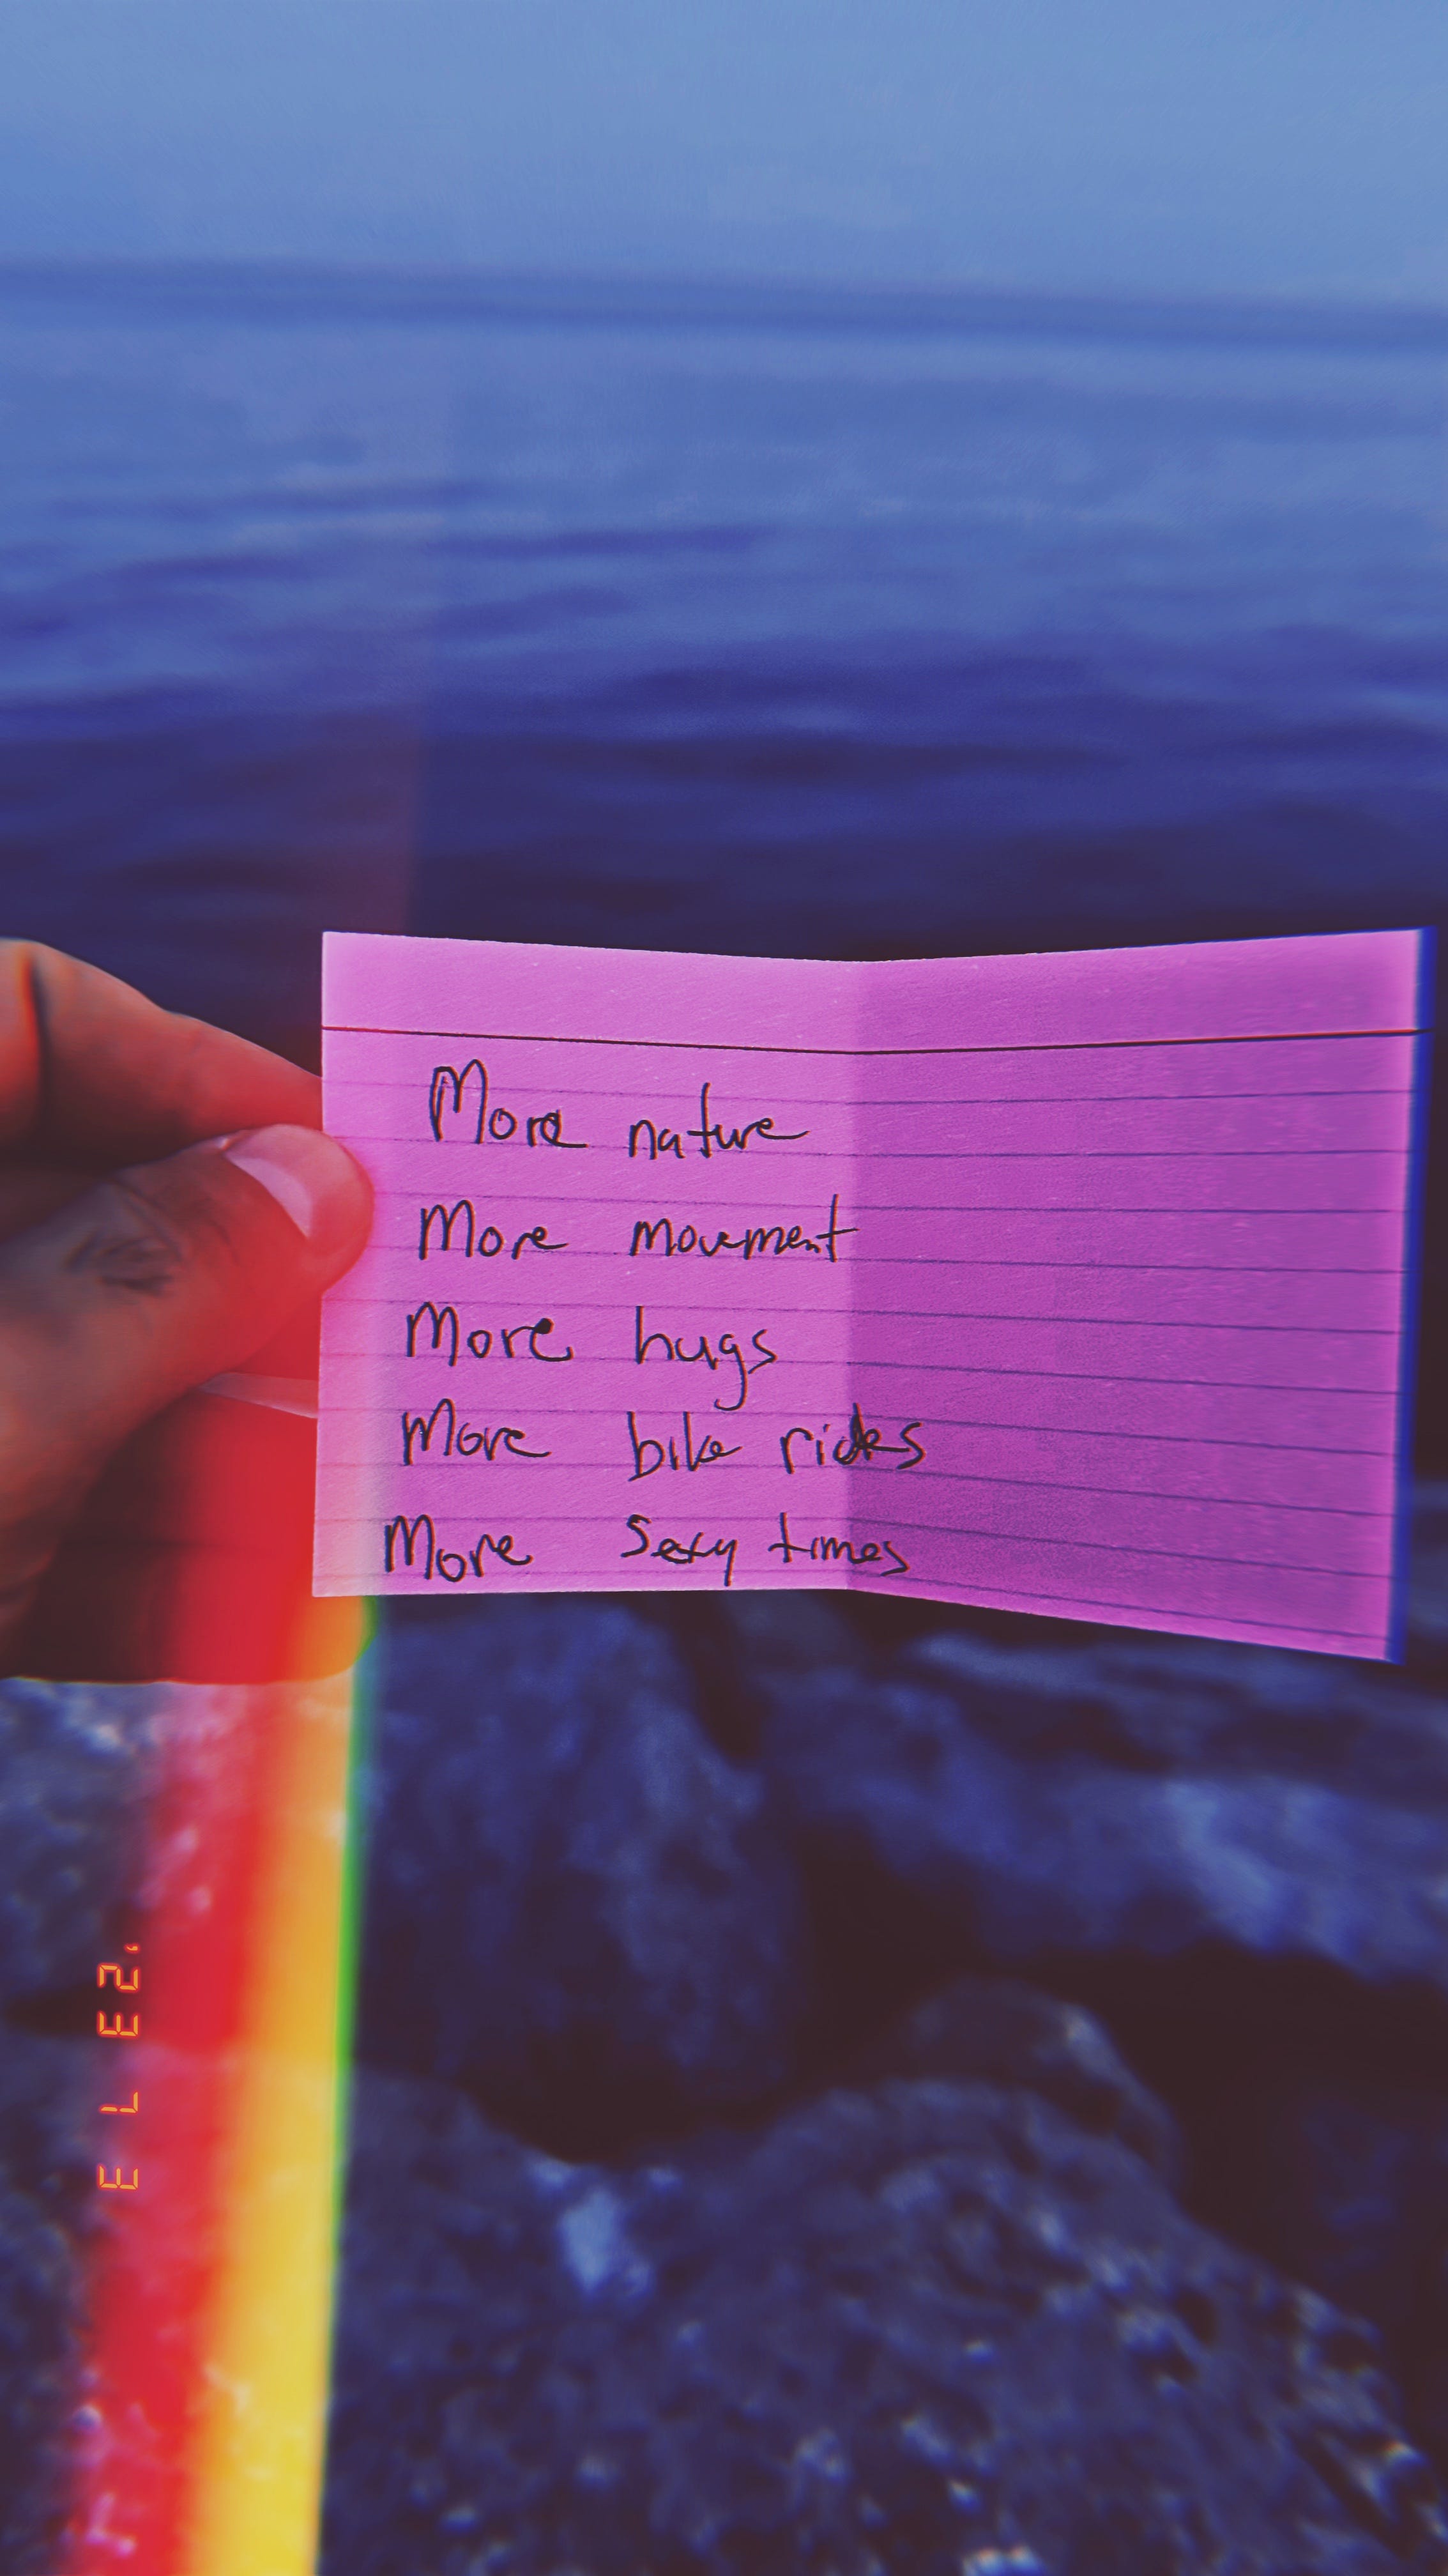 More nature
More movement
More hugs
More bike rides
More sexy times